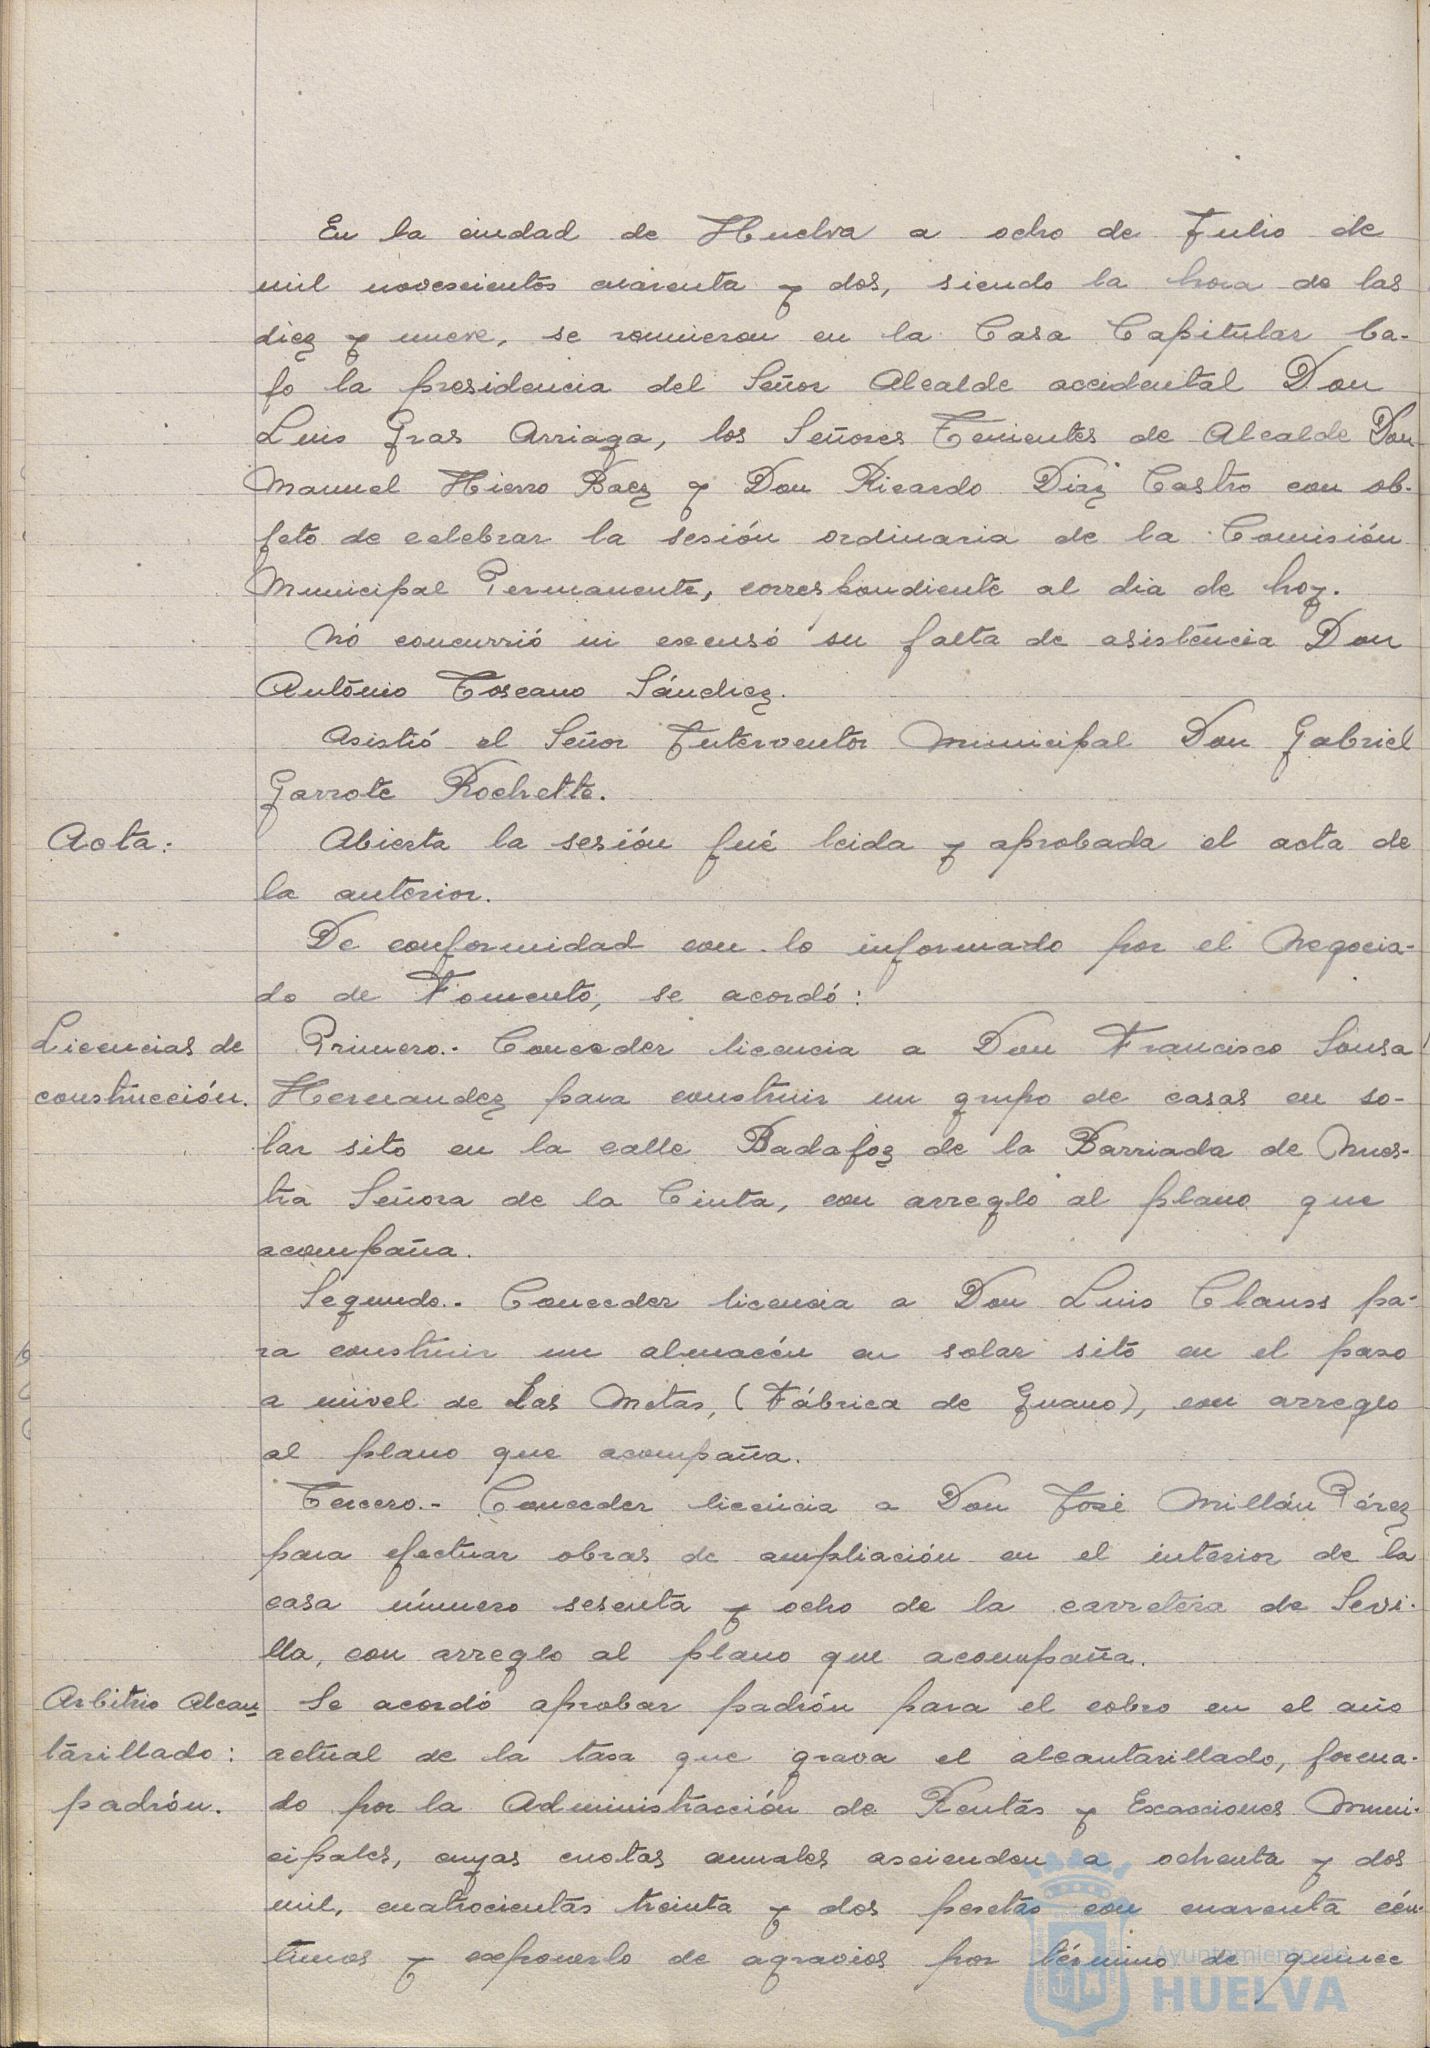 En la ciudad de Huelva a ocho de Julio de
mil novescientos cuarenta y dos, siendo la hora de las
diez y nueve, se reunieron en la Casa Capitular ba-
jo la presidencia del Señor Alcalde accidental Don
Luis Gras Arriaga, los Señores Tenientes de Alcalde Don
Manuel Hierro Baez y Don Ricardo Diaz Castro con ob-
jeto de celebrar la sesión ordinaria de la Comisión
Municipal Permanente, correspondiente al dia de hoy.
No concurrió ni escusó su falta de asistencia Don
Antonio Toscano Sánchez.
Asistió el Señor Interventor Municipal Don Gabriel
Garrote Rochette.
Acta:
Abierta la sesión fué leida y aprobada el acta de
la anterior.
De conformidad con lo informado por el Negocia-
do de Fomento, se acordó:
Licencias de
construcción.
Primero.- Conceder licencia a Don Francisco Sousa
Hernandez para construir un grupo de casas en so-
lar sito en la calle Badajoz de la Barriada de Nues-
tra Señora de la Cinta, con arreglo al plano que
acompaña.
Segundo.- Conceder licencia a Don Luis Clauss pa-
ra construir un almacén en solar sito en el paso
a nivel de Las Metas, (Fábrica de Guano), con arreglo
al plano que acompaña.
Tercero.- Conceder licencia a Don José Millán Pérez
para efectuar obras de ampliación en el interior de la
casa número sesenta y ocho de la carretera de Sevi-
lla, con arreglo al plano que acompaña.
Arbitrio Alcan
tarillado:
padrón.
Se acordó aprobar padrón para el cobro en el año
actual de la tasa que grava el alcantarillado, forma-
do por la Administracción de Rentas y Exacciones Muni-
cipales, cuyas cuotas anuales ascienden a ochenta y dos
mil, cuatrocientas treinta y dos pesetas con cuarenta cén-
timos y exponerlo de agravios por término de quince
Ayuntamiento de
HUELVA